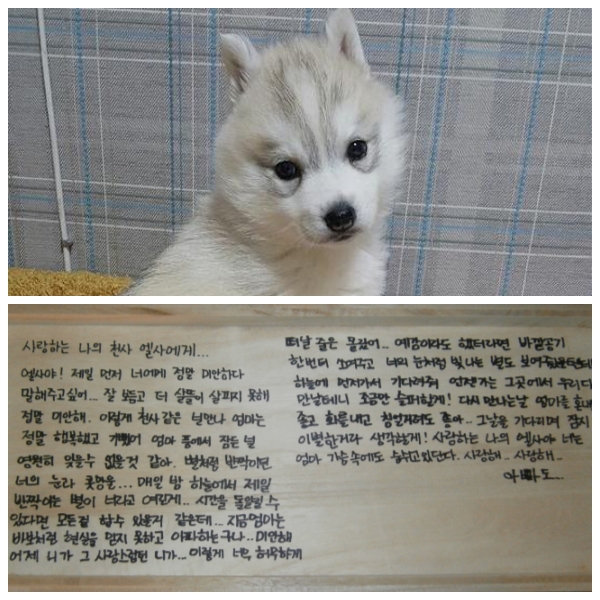 사랑하는 나의 천사 엘사에게...
엘사야! 제일 먼저 너에게 정말 미안하다
말해주고싶어... 잘 보듬고 더 살뜰이 살피지 못해
정말 미안해. 이렇게 천사같은 널만나 엄마는
정말 행복했고 기뻤어 엄마 품에서 잠든 널
영원히 잊을수 없을것 같아. 별처럼 반짝이던
너의 눈과 콧망울... 매일 밤 하늘에서 제일
반짝이는 별이 너라고 여길게.. 시간을 돌릴수
있다면 모든걸 할수 있을거 같은데... 지금엄마는
바보처럼 현실을 믿지 못하고 아파하는구나.. 미안해
어제 니가 그 사랑스럽던 니가... 이렇게 너무 허무하게
떠날 줄은 몰랐어... 예감이라도 했더라면 바깥공기
한번더 쐬여주고 너의 눈처럼 빛나는 별도
하늘에 먼저가서 기다려줘 언젠가는 그곳에서 우리 다시
만날테니 조금만 슬퍼할게! 다시 만나는날 엄마를
화를내고 칭얼거려도 좋아.. 그날을 기다리며 잠시
이별한거라 생각할게! 사랑하는 나의 엘사야 너는
엄마 가슴속에도 숨쉬고있단다. 사랑해.. 사랑해..
아빠도...